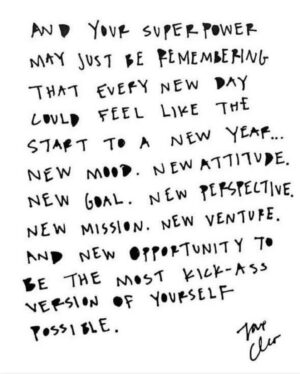 AND YOUR SUPER POWER
MAY JUST BE REMEMBERING
THAT EVERY NEW DAY
COULD FEEL LIKE THE
START TO A NEW YEAR...
NEW MOOD. NEW ATTITUDE.
NEW GOAL. NEW PERSPECTIVE.
NEW MISSION. NEW VENTURE.
AND NEW OPPORTUNITY TO
BE THE MOST KICK-ASS
VERSION OF YOURSELF
POSSIBLE.